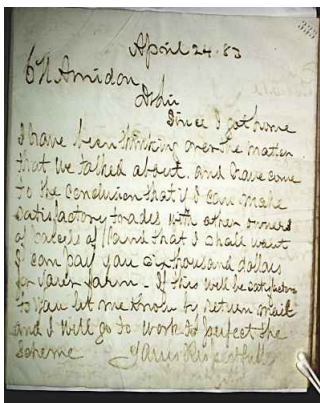 333
April 24 83
C H Amidon
D Sir
Since I got home
I have been thinking over the matter
that we talked about, and have come
to the conclusion that if I can make
satisfactory trades with other owners
of parcels of land that I shall want
I can pay you six thousand dollars
for your farm - If this will be satisfactory
to you let me know by return mail
and I will go to work to perfect the
scheme Yours Respectfully